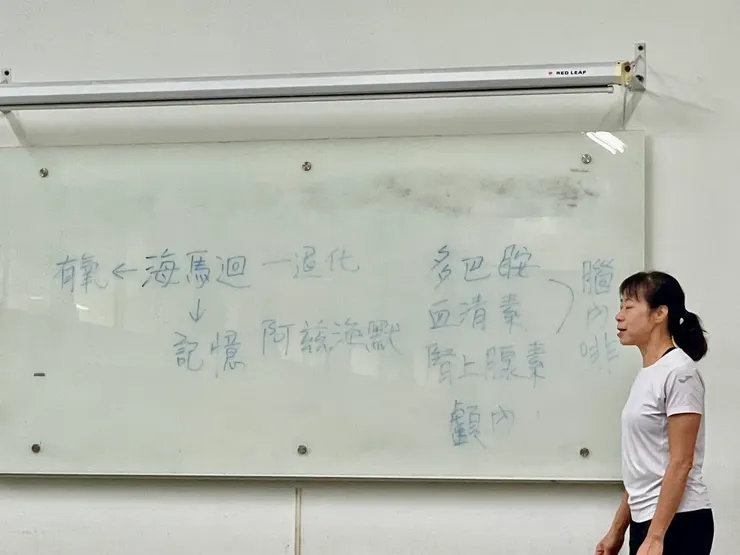 RED LEAF
有氧 ← 海馬迴 — 退化
↓
記憶 阿茲海默
多巴胺
血清素
腎上腺素
顱內
腦內啡